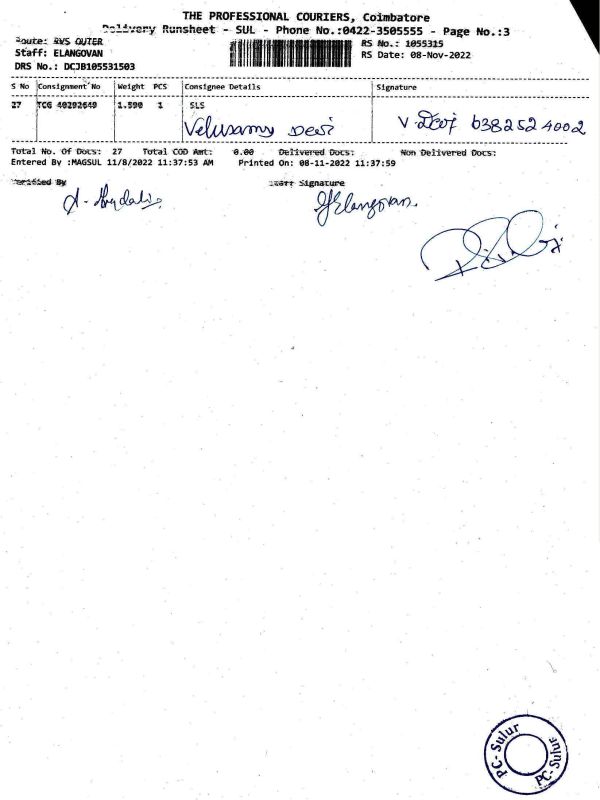 THE PROFESSIONAL COURIERS, Coimbatore
Delivery Runsheet - SUL - Phone No.:0422-3505555 - Page No.:3
Route: RVS OUTER
RS No.: 1055315
Staff: ELANGOVAN
RS Date: 08-Nov-2022
DRS No.: DCJB105531503
S No Consignment No Weight PCS Consignee Details Signature
27 TCG 40292649 1.590 1 SLS
Velusamy Devi
V. 6382524002
Total No. Of Docs: 27 Total COD Amt: 0.00 Delivered Docs: Non Delivered Docs:
Entered By :MAGSUL 11/8/2022 11:37:53 AM Printed On: 08-11-2022 11:37:59
Verified By
Staff Signature
Elangovan
PC-Sulur
PC-Sulur